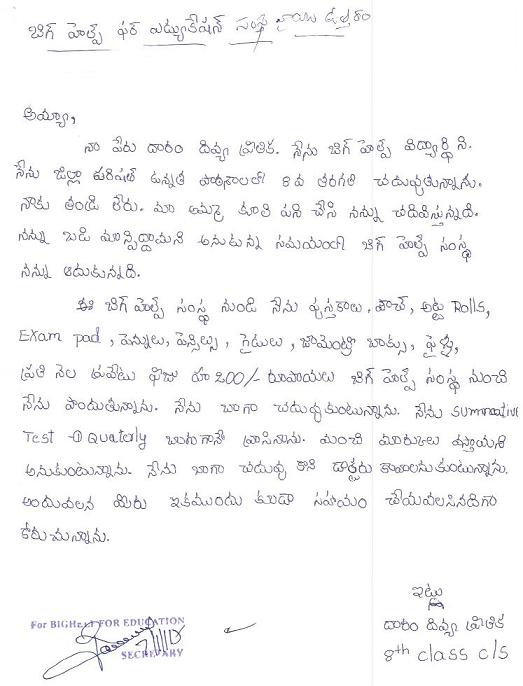 బిగ్ హెల్ప్ ఫర్ ఎడ్యుకేషన్ సంస్థ వ్రాయు ఉత్తరం
అయ్యా,
నా పేరు దారం దివ్య ప్రితిక. నేను బిగ్ హెల్ప్ విద్యార్థి ని.
నేను జిల్లా పరిషత్ ఉన్నత పాఠశాలలో 8వ తరగతి చదువుతున్నాను.
నాకు తండ్రి లేరు. మా అమ్మ కూలి పని చేసి నన్ను చదివిస్తున్నది.
నన్ను బడి మాన్పిద్దామని అనుకున్న సమయంలో బిగ్ హెల్ప్ సంస్థ
నన్ను ఆదుకున్నది.
ఈ బిగ్ హెల్ప్ సంస్థ నుండి నేను పుస్తకాలు, పౌచ్, అట్ట Rolls,
Exam pad, పెన్నులు, పెన్సిల్స్, గైడులు, జామెంట్రీ బాక్సు, ఫైల్స్,
ప్రతి నెల ట్రైవేటు ఫీజు రూ 200/- రూపాయలు బిగ్ హెల్ప్ సంస్థ నుంచి
నేను పొందుతున్నాను. నేను బాగా చదువుకుంటున్నాను. నేను Summative
Test -① Quaterly బాగుగానే వ్రాసినాను. మంచి మారుకులు వస్తాయని
అనుకుంటున్నాను. నేను బాగా చదువు కొని డాక్టరు కావాలనుకుంటున్నాను.
అందువలన మీరు ఇకముందు కూడా సహాయం చేయవలసినదిగా
కోరుచున్నాను.
ఇట్లు
దారం దివ్య ప్రితిక
8th class c/s
For BIGHELP FOR EDUCATION
SECRETARY